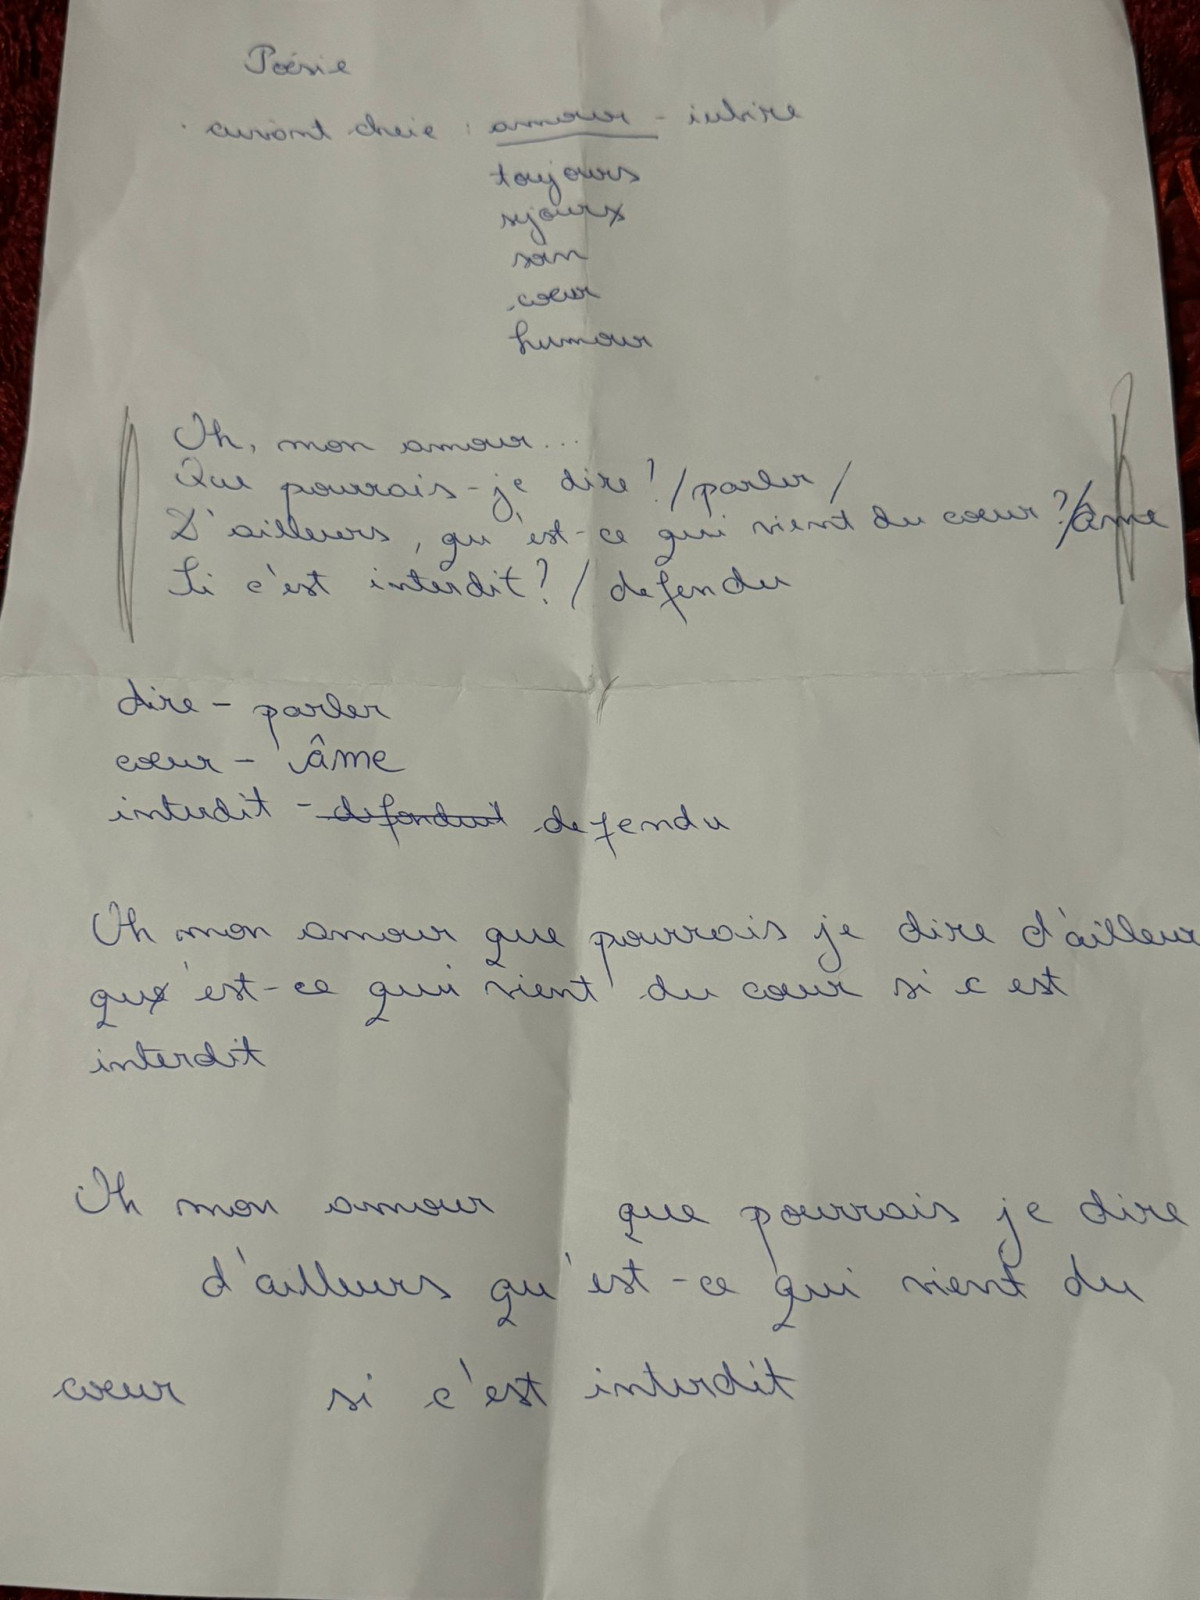 Poésie
cuvânt cheie : amour - iubire
toujours
sjours
soin
coeur
humour
Oh, mon amour...
Que pourrais-je dire? /parler/
D'ailleurs, qu'est-ce qui vient du coeur? /âme
Si c'est interdit? / defendu
dire - parler
coeur - âme
interdit - defenduit defendu
Oh mon amour que pourrais je dire d'ailleur
qu'est-ce qui vient du coeur si c est
interdit
Oh mon amour que pourrais je dire
d'ailleurs qu'est-ce qui vient du
coeur si c'est interdit